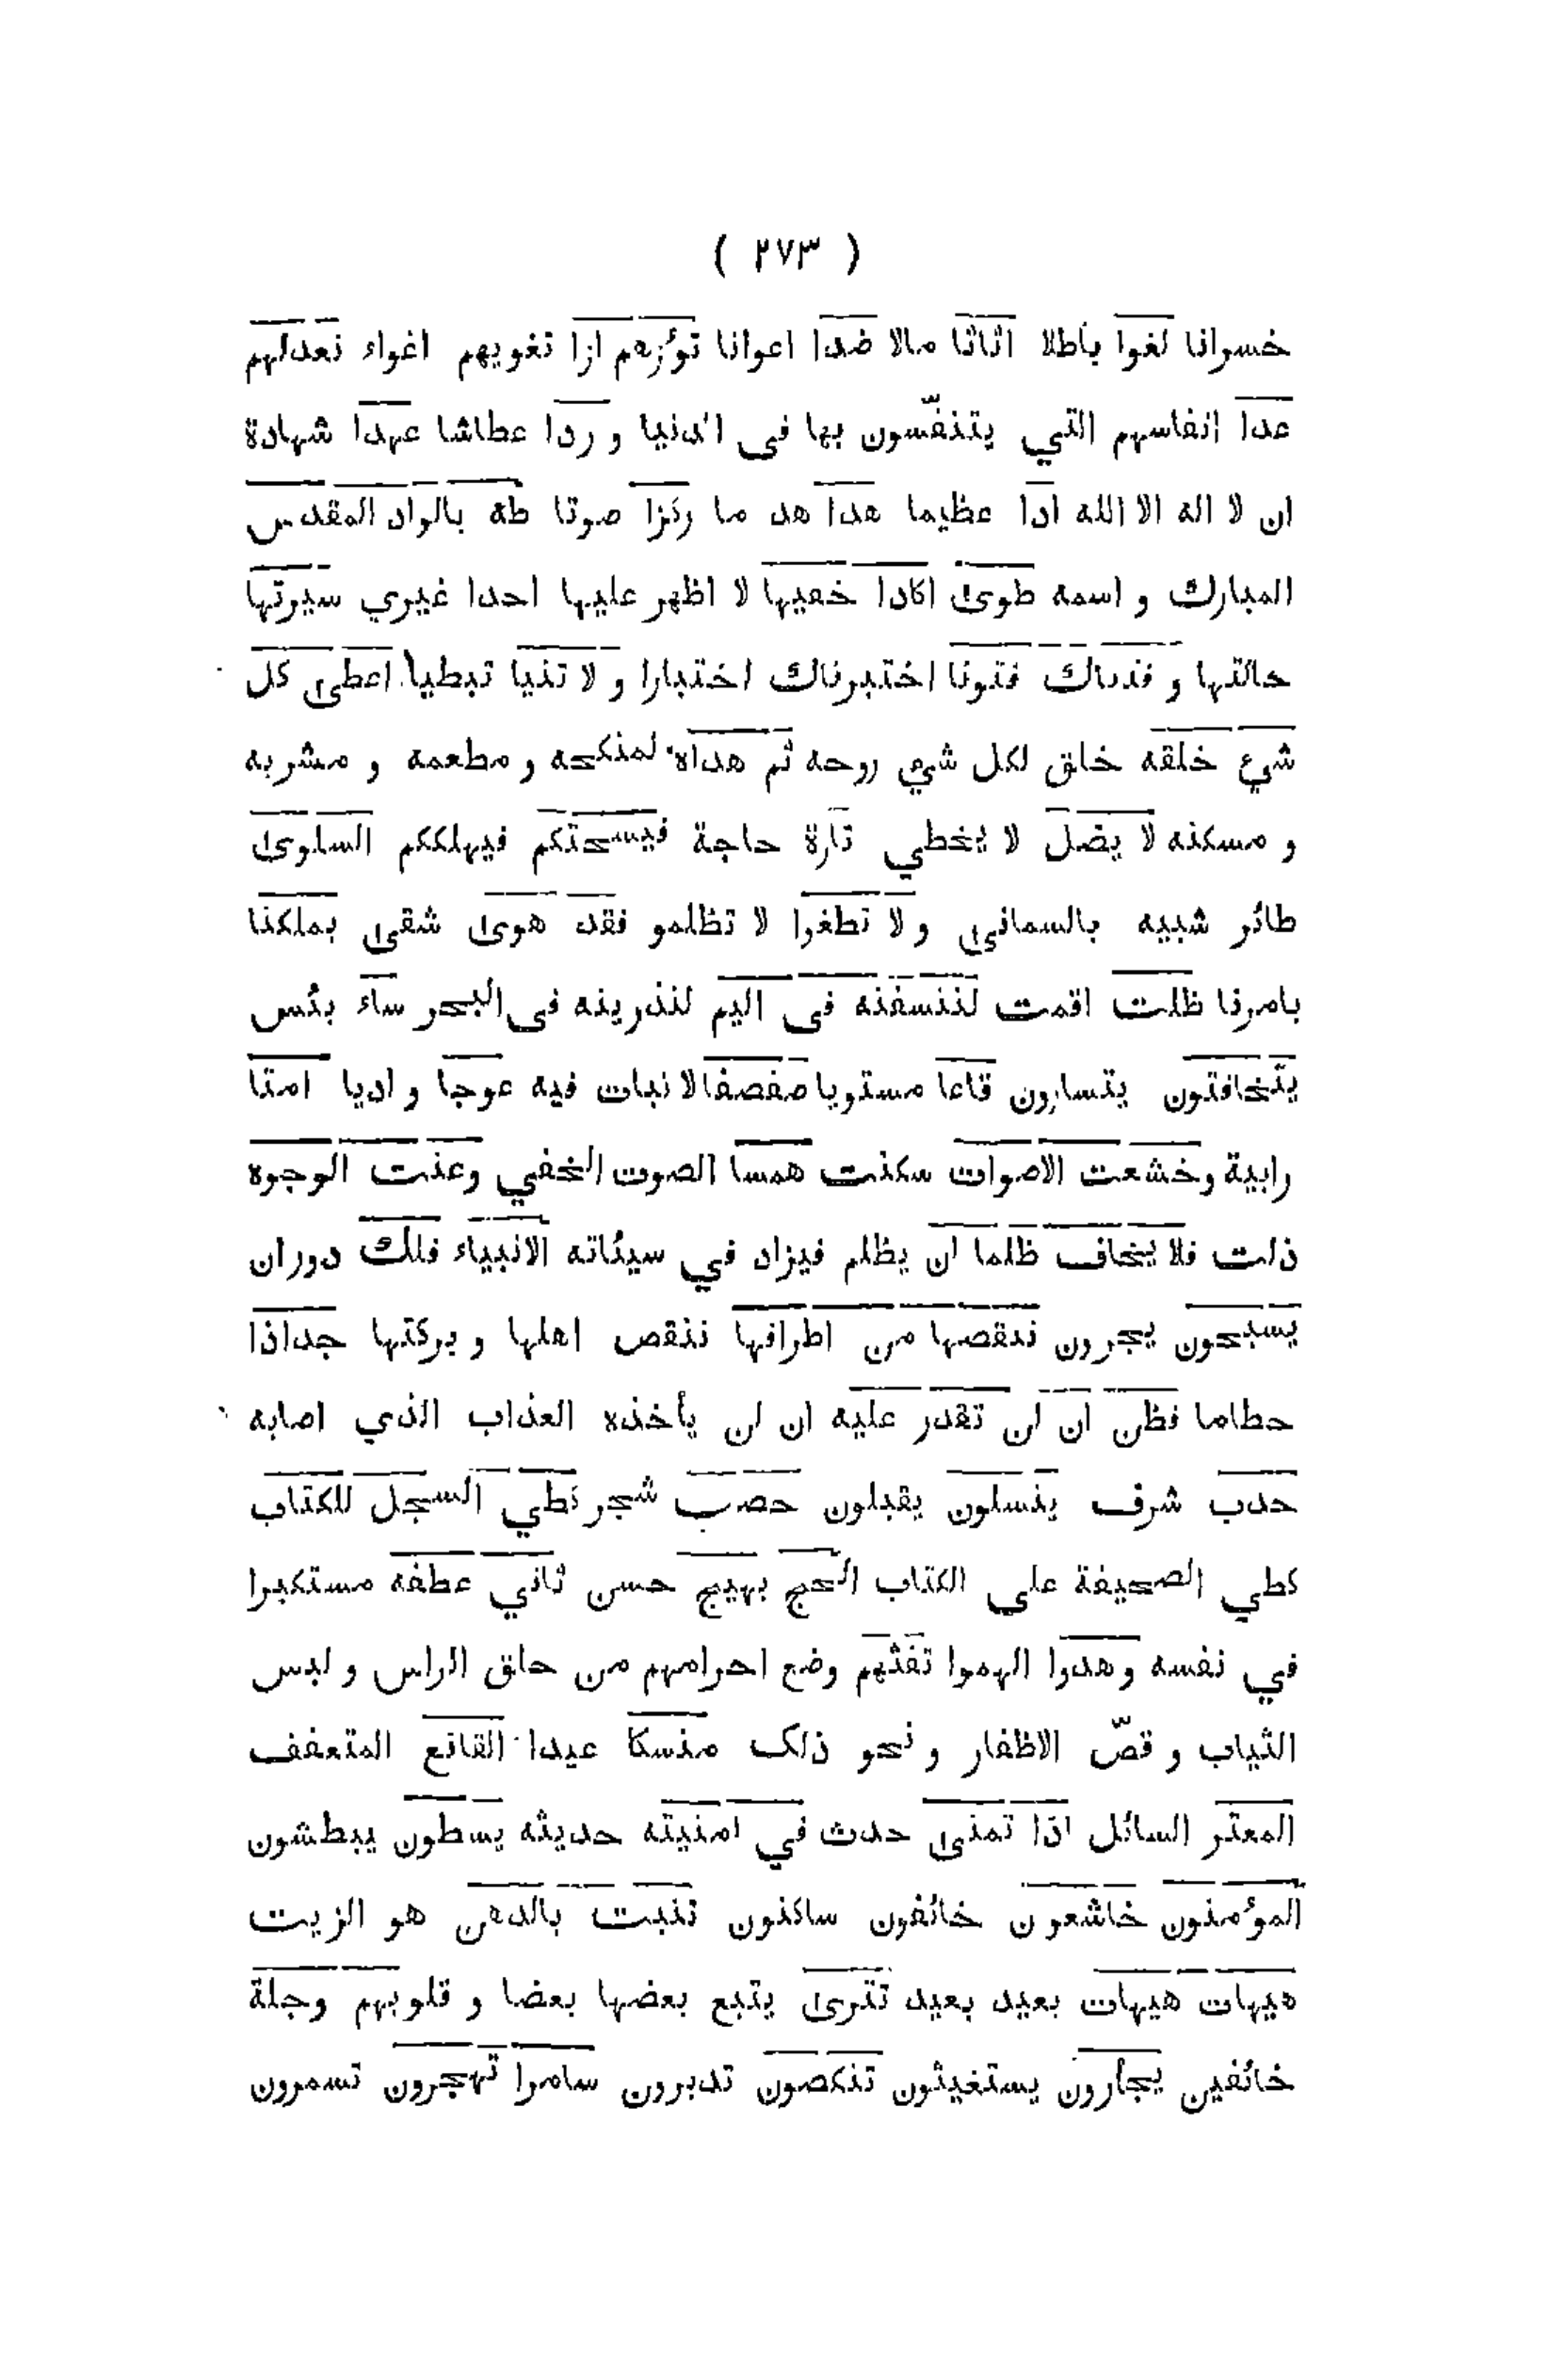 ( ٢٧٣ )
خسرانا لغوا باطلا اثاثا مالا ضدا اعوانا تؤزهم ازا تغويهم اغواء نعدلهم
عدا انفاسهم التي يتنفّسون بها فى الدنيا و ردا عطاشا عهدا شهادة
ان لا اله الا الله ادا عظيما هدا هد ما ركزا صوتا طه بالواد المقدس
المبارك و اسمه طوى اكادا خفيها لا اظهر عليها احدا غيري سيرتها
حالتها و فتناك فتونا اختبرناك اختبارا و لا تنيا تبطيا اعطى كل
شيء خلقه خلق لكل شي روحه ثم هداه لمنكحه و مطعمه و مشربه
و مسكنه لا يضل لا يخطي تارة حاجة فيسحتكم فيهلككم السلوى
طائر شبيه بالسمانى و لا تطغوا لا تظلمو فقد هوى شقى بملكنا
بامرنا ظلت اقمت لننسفنه فى اليم لنذرينه فى البحر ساء بئس
يتخافتون يتسارون قاعا مستويا صفصفا لا نبات فيه عوجا و اديا امتا
رابية و خشعت الاصوات سكنت همسا الصوت الخفي وعنت الوجوه
ذلت فلا يخاف ظلما ان يظلم فيزاد في سيئاته الانبياء فلك دوران
يسبحون يجرون ننقصها من اطرافها ننقص اهلها و بركتها جذاذا
حطاما فظن ان لن تقدر عليه ان لن يأخذه العذاب الذي اصابه
حدب شرف ينسلون يقبلون حصب شجر نطي السجل للكتاب
كطي الصحيفة على الكتاب الحج بهيج حسن ثاني عطفه مستكبرا
في نفسه وهدوا الهموا تفثهم وضع احرامهم من حلق الراس و لبس
الثياب و قصّ الاظفار و نحو ذلك منسكا عيدا القانع المتعفف
المعتر السائل اذا تمنى حدث في امنيته حديثه يسطون يبطشون
المؤمنون خاشعون خائفون ساكنون تنبت بالدهن هو الزيت
هيهات هيهات بعيد بعيد تترى يتبع بعضها بعضا و قلوبهم وجلة
خائفين يجأرون يستغيثون تنكصون تدبرون سامرا تهجرون تسمرون